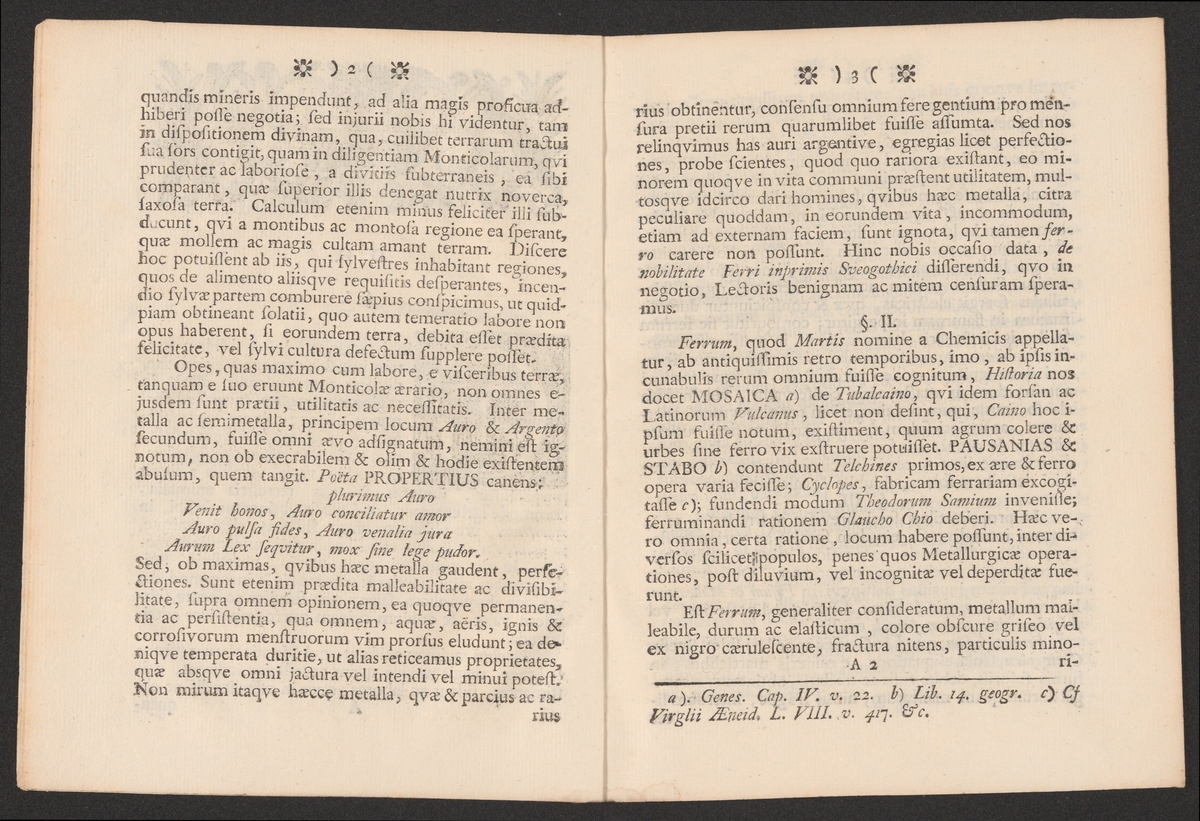 ) 2 (
quandis mineris impendunt, ad alia magis proficua ad-
hiberi poſſe negotia; ſed injurii nobis hi videntur, tam
in diſpoſitionem divinam, qua, cuilibet terrarum tractui
ſua ſors contigit, quam in diligentiam Monticolarum, qvi
prudenter ac laborioſe, a divitiis ſubterraneis, ea ſibi
comparant, quæ ſuperior illis denegat nutrix noverca,
ſaxoſa terra. Calculum etenim minus feliciter illi ſub-
ducunt, qvi a montibus ac montoſa regione ea ſperant,
quæ mollem ac magis cultam amant terram. Diſcere
hoc potuiſſent ab iis, qui ſylveſtres inhabitant regiones,
quos de alimento aliisqve requiſitis deſperantes, incen-
dio ſylvæ partem comburere ſæpius conſpicimus, ut quid-
piam obtineant ſolatii, quo autem temeratio labore non
opus haberent, ſi eorundem terra, debita eſſet prædita
felicitate, vel ſylvi cultura defectum ſupplere poſſet.
Opes, quas maximo cum labore, e viſceribus terræ,
tanquam e ſuo eruunt Monticolæ ærario, non omnes e-
jusdem ſunt prætii, utilitatis ac neceſſitatis. Inter me-
talla ac ſemimetalla, principem locum Auro & Argento
ſecundum, fuiſſe omni ævo adſignatum, nemini eſt ig-
notum, non ob execrabilem & olim & hodie exiſtentem
abuſum, quem tangit. Poëta PROPERTIUS canens:
plurimus Auro
Venit honos, Auro conciliatur amor
Auro pulſa fides, Auro venalia jura
Aurum Lex ſeqvitur, mox ſine lege pudor.
Sed, ob maximas, qvibus hæc metalla gaudent, perfe-
ctiones. Sunt etenim prædita malleabilitate ac diviſibi-
litate, ſupra omnem opinionem, ea quoqve permanen-
tia ac perſiſtentia, qua omnem, aquæ, aëris, ignis &
corroſivorum menſtruorum vim prorſus eludunt; ea de-
niqve temperata duritie, ut alias reticeamus proprietates,
quæ absqve omni jactura vel intendi vel minui poteſt.
Non mirum itaqve hæcce metalla, qvæ & parcius ac ra-
rius
) 3 (
rius obtinentur, conſenſu omnium fere gentium pro men-
ſura pretii rerum quarumlibet fuiſſe aſſumta. Sed nos
relinqvimus has auri argentive, egregias licet perfectio-
nes, probe ſcientes, quod quo rariora exiſtant, eo mi-
norem quoqve in vita communi præſtent utilitatem, mul-
tosqve idcirco dari homines, qvibus hæc metalla, citra
peculiare quoddam, in eorundem vita, incommodum,
etiam ad externam faciem, ſunt ignota, qvi tamen fer-
ro carere non poſſunt. Hinc nobis occaſio data, de
nobilitate Ferri inprimis Sveogothici diſſerendi, qvo in
negotio, Lectoris benignam ac mitem cenſuram ſpera-
mus.
§. II.
Ferrum, quod Martis nomine a Chemicis appella-
tur, ab antiquiſſimis retro temporibus, imo, ab ipſis in-
cunabulis rerum omnium fuiſſe cognitum, Hiſtoria nos
docet MOSAICA a) de Tubalcaino, qvi idem forſan ac
Latinorum Vulcanus, licet non deſint, qui, Caino hoc i-
pſum fuiſſe notum, exiſtiment, quum agrum colere &
urbes ſine ferro vix exſtruere potuiſſet. PAUSANIAS &
STABO b) contendunt Telchines primos, ex ære & ferro
opera varia feciſſe; Cyclopes, fabricam ferrariam excogi-
taſſe c); fundendi modum Theodorum Samium inveniſſe;
ferruminandi rationem Glaucho Chio deberi. Hæc ve-
ro omnia, certa ratione, locum habere poſſunt, inter di-
verſos ſcilicet populos, penes quos Metallurgicæ opera-
tiones, poſt diluvium, vel incognitæ vel deperditæ fue-
runt.
Eſt Ferrum, generaliter conſideratum, metallum mal-
leabile, durum ac elaſticum, colore obſcure griſeo vel
ex nigro cæruleſcente, fractura nitens, particulis mino-
A 2 ri-
a). Genes. Cap. IV. v. 22. b) Lib. 14. geogr. c) Cf
Virglii Æneid. L. VIII. v. 417. &c.